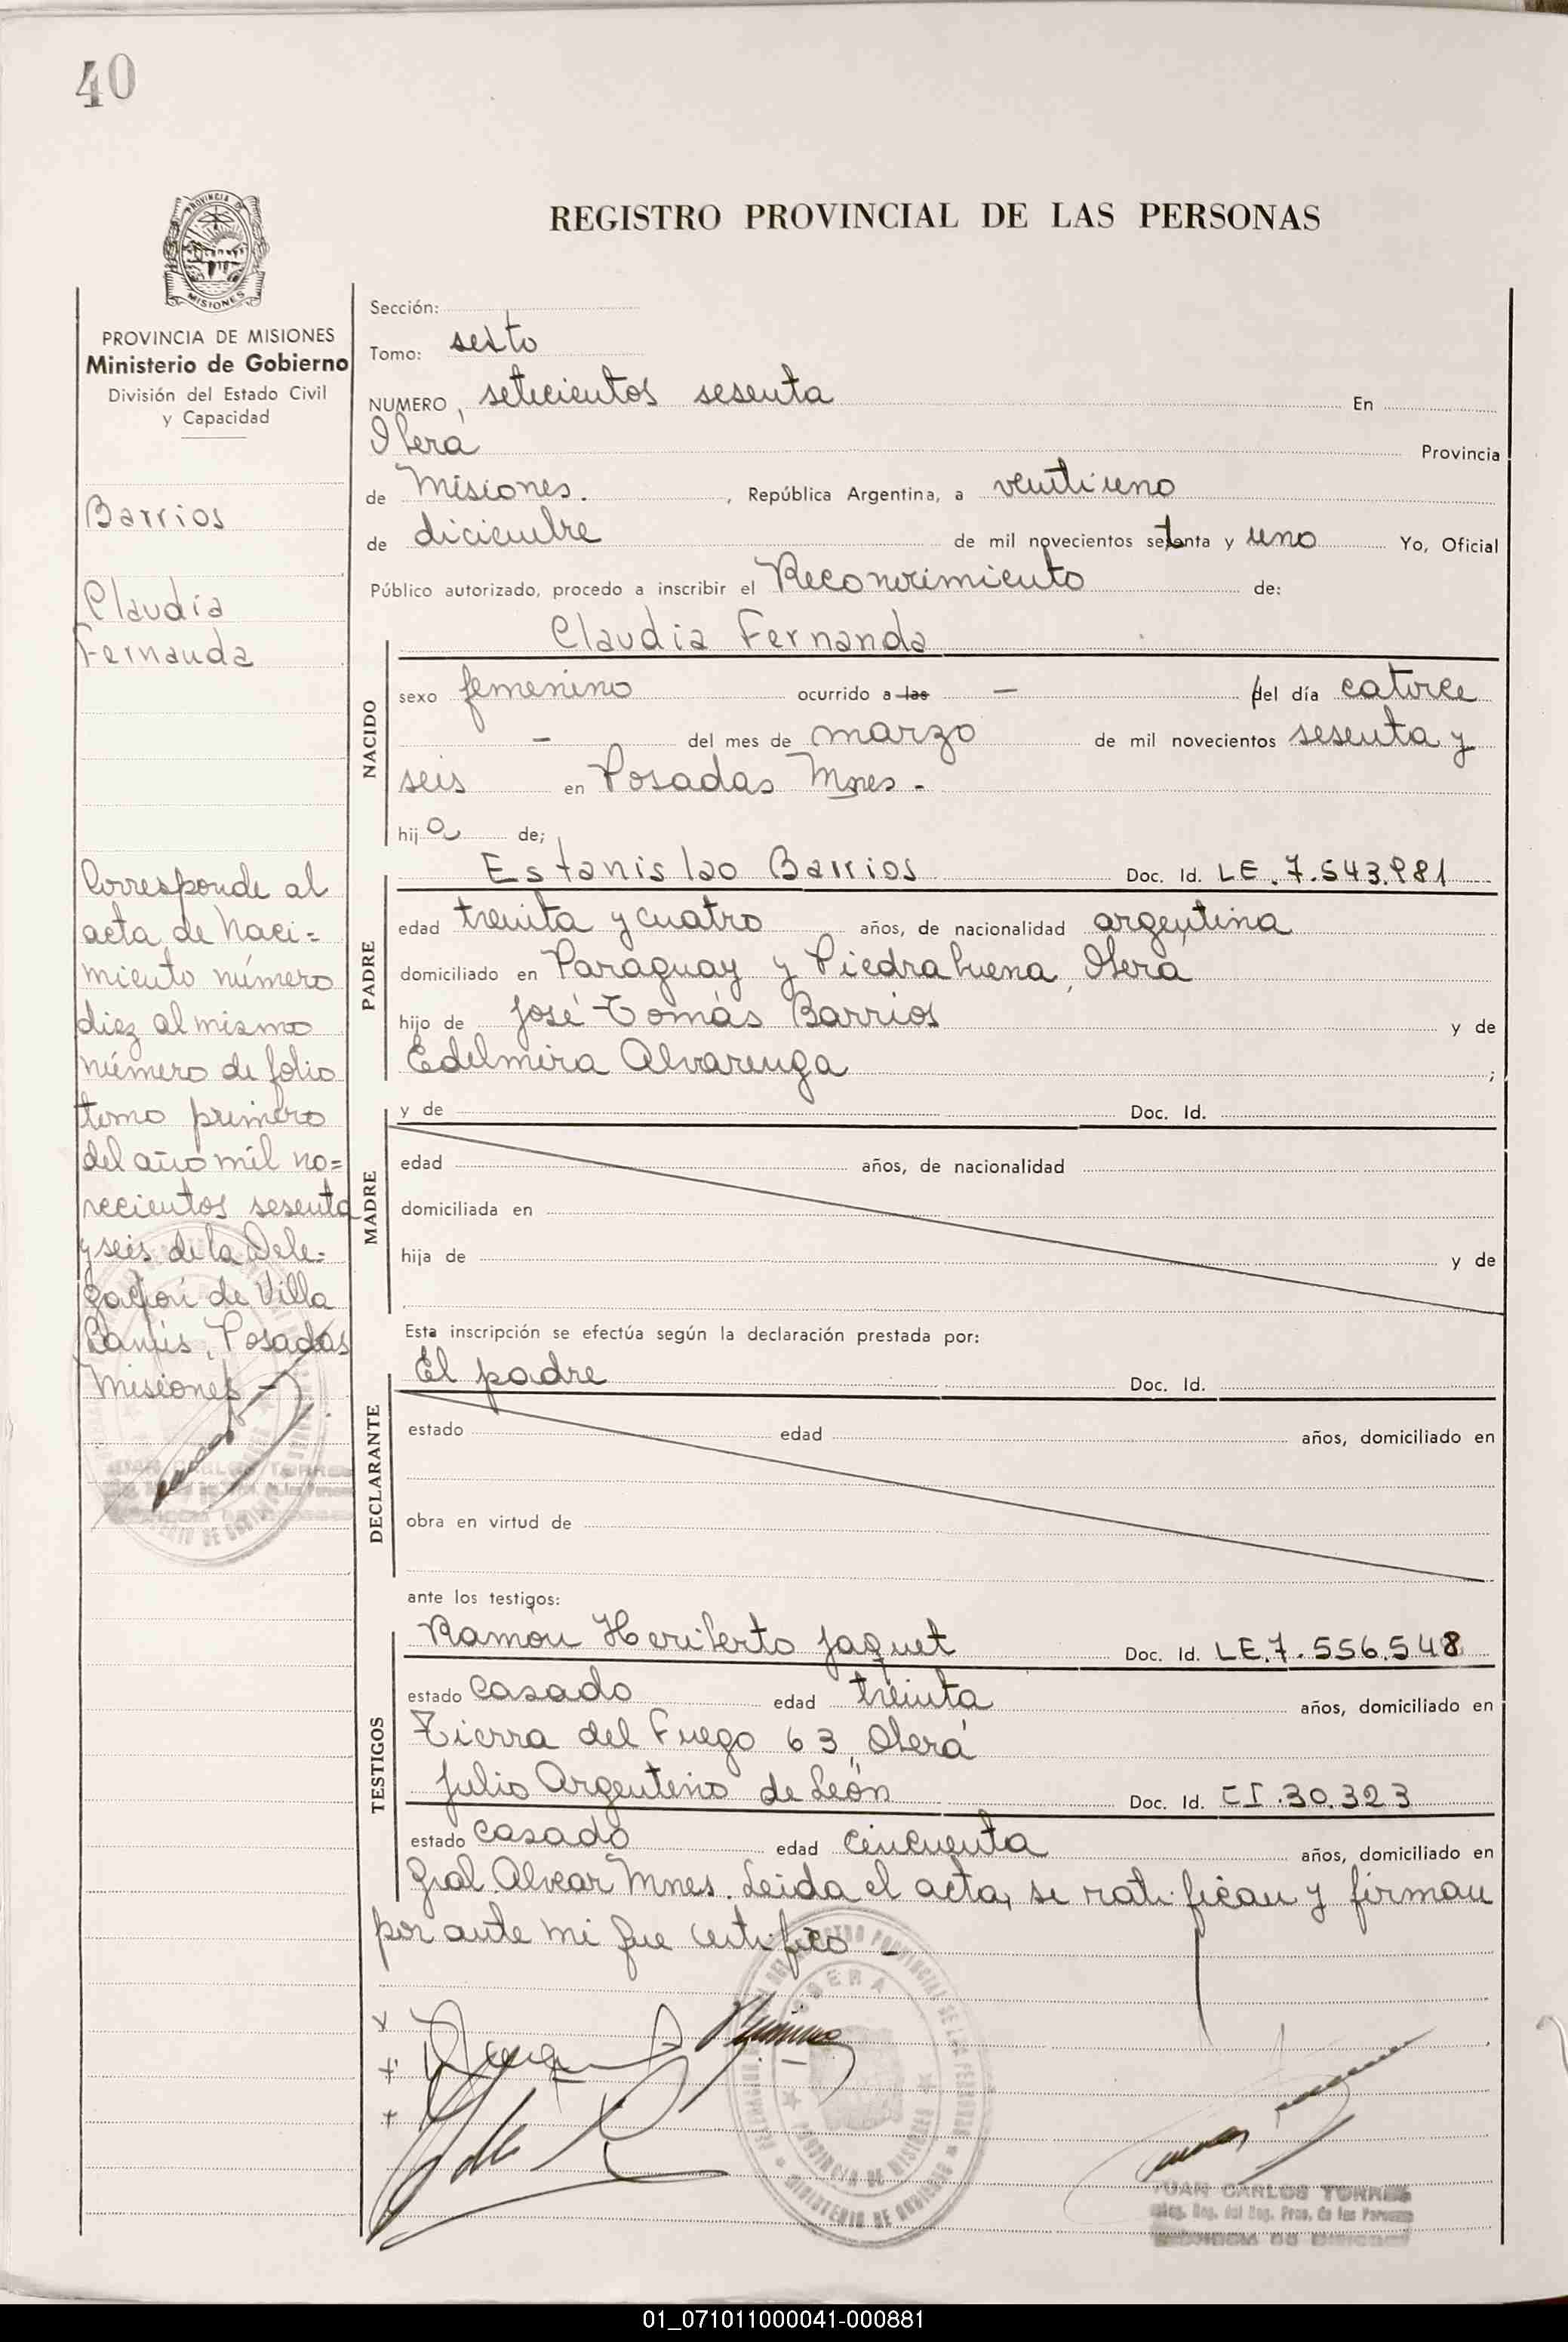 40
PROVINCIA DE
MISIONES
REGISTRO PROVINCIAL DE LAS PERSONAS
PROVINCIA DE MISIONES
Ministerio de Gobierno
División del Estado Civil
y Capacidad
Barrios
Claudia
Fernanda
Corresponde al
acta de Naci=
miento número
diez al mismo
número de folio
tomo primero
del año mil no=
vecientos sesenta
y seis de la Dele-
gación de Villa
Lanús, Posadas
Misiones -
Sección:
Tomo: sexto
NUMERO, setecientos sesenta En
Oberá Provincia
de Misiones. , República Argentina, a veintiuno
de diciembre de mil novecientos setenta y uno Yo, Oficial
Público autorizado, procedo a inscribir el Reconocimiento de:
Claudia Fernanda
NACIDO
sexo femenino ocurrido a las — del día catorce
— del mes de marzo de mil novecientos sesenta y
seis en Posadas Mnes -
hija de;
PADRE
Estanislao Barrios Doc. Id. LE. 7.543.981
edad treinta y cuatro años, de nacionalidad argentina
domiciliado en Paraguay y Piedrabuena, Oberá
hijo de José Tomás Barrios y de
Edelmira Alvarenga ;
MADRE
y de Doc. Id.
edad años, de nacionalidad
domiciliada en
hija de y de
Esta inscripción se efectúa según la declaración prestada por:
DECLARANTE
El padre Doc. Id.
estado edad años, domiciliado en
obra en virtud de
ante los testigos:
TESTIGOS
Ramón Heriberto Jaquet Doc. Id. LE.7.556.548
estado casado edad treinta años, domiciliado en
Tierra del Fuego 63, Oberá
Julio Argentino de León Doc. Id. CI.30.323
estado casado edad cincuenta años, domiciliado en
Gral. Alvear Mnes. Leida el acta, se ratifican y firman
por ante mi que certifico -
OBERA
PROVINCIA DE MISIONES
MINISTERIO DE GOBIERNO
JUAN CARLOS TORRES
01_071011000041-000881